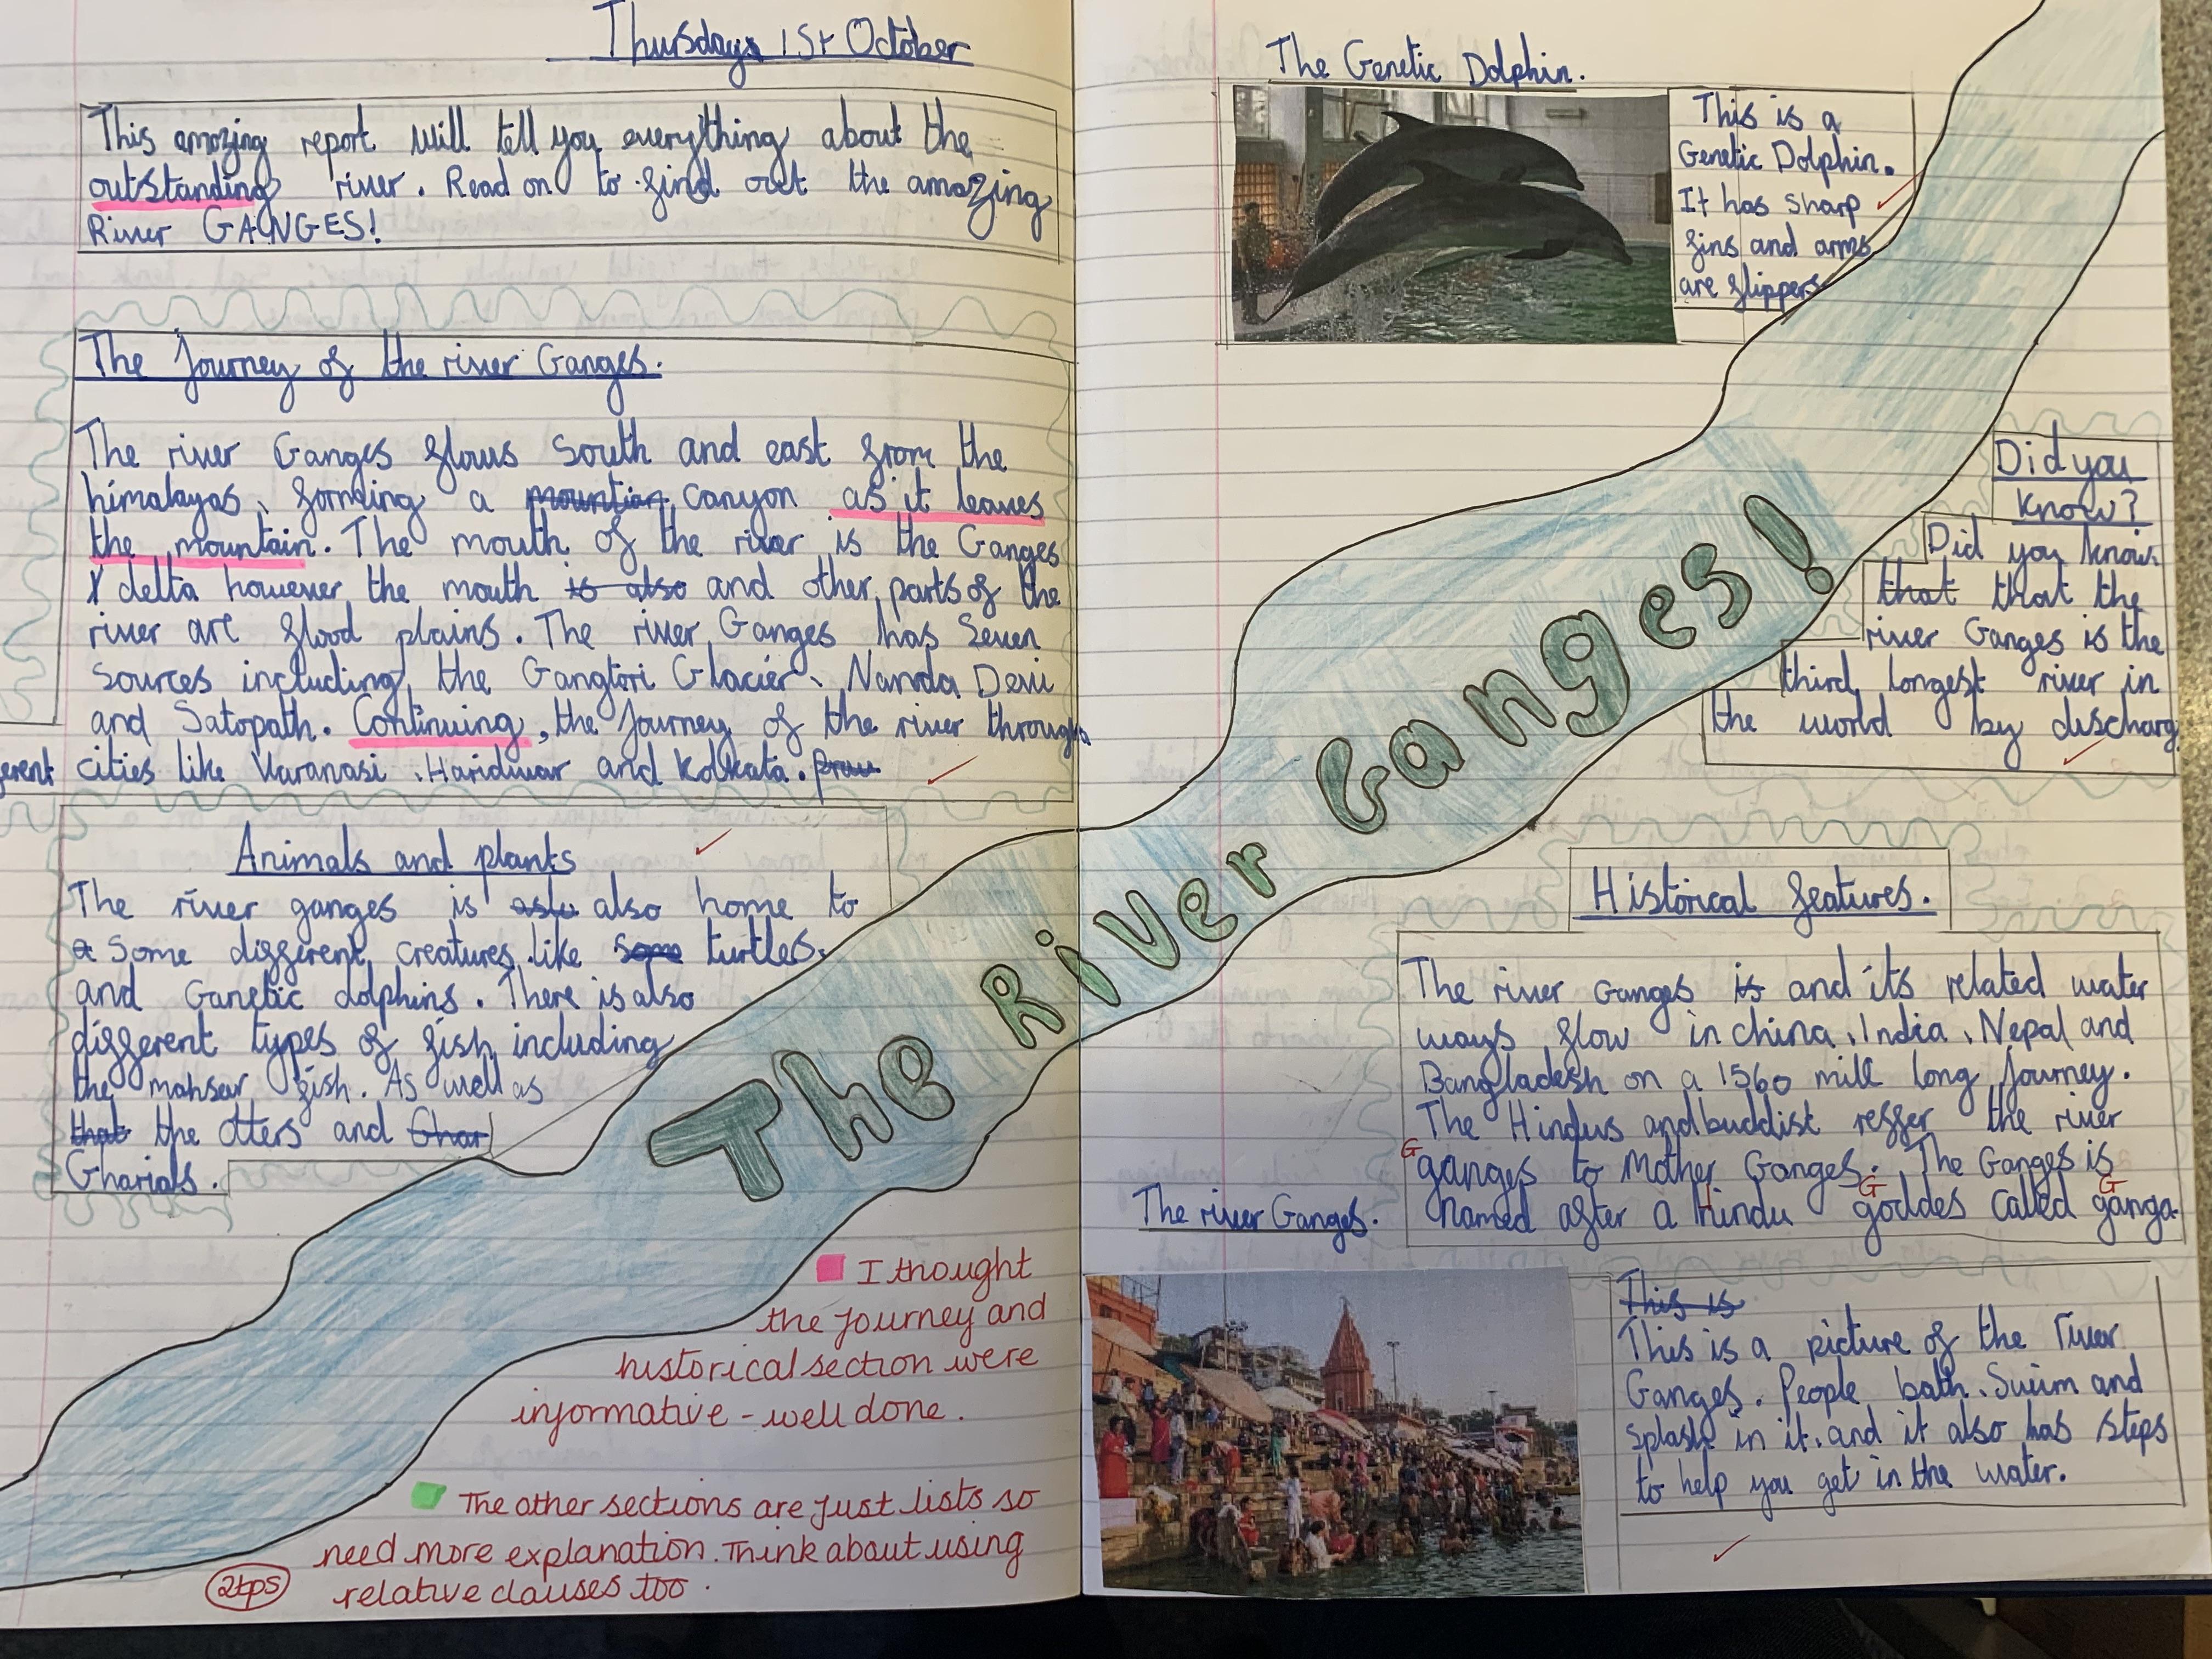 Thursday 1st October
This amazing report will tell you everything about the
outstanding river. Read on to find out the amazing
River GANGES!
The Journey of the river Ganges.
The river Ganges flows South and east from the
himalayas, forming a mountian canyon as it leaves
the mountain. The mouth of the river is the Ganges
delta however the mouth is also and other parts of the
river are flood plains. The river Ganges has Seven
Sources including the Gangtori Glacier, Nanda Devi
and Satopath. Continuing, the journey of the river through
erent cities like Varanasi, Haridwar and Kolkata.
Animals and plants
The river ganges is aslo also home to
a Some different creatures like some turtles.
and Ganetic dolphins. There is also
different types of fish including
the mahsear fish. As well as
that the otters and Ghar
Gharials.
The River Ganges!
I thought
the journey and
historical section were
informative - well done.
The other sections are just lists so
need more explanation. Think about using
relative clauses too.
2tps
The Genetic Dolphin.
This is a
Genetic Dolphin.
It has sharp
fins and arms
are flippers
Did you
know?
Did you know
that that the
river Ganges is the
third longest river in
the world by discharg
Historical features.
The river Ganges is and its related water
ways flow in china, India, Nepal and
Bangladesh on a 1560 mill long journey.
The Hindus and buddist reffer the river
G
ganges to Mother Ganges. The Ganges is
G G
named after a Hindu goddes called ganga.
The river Ganges.
This is
This is a picture of the river
Ganges. People bath, Swim and
splash in it, and it also has steps
to help you get in the water.